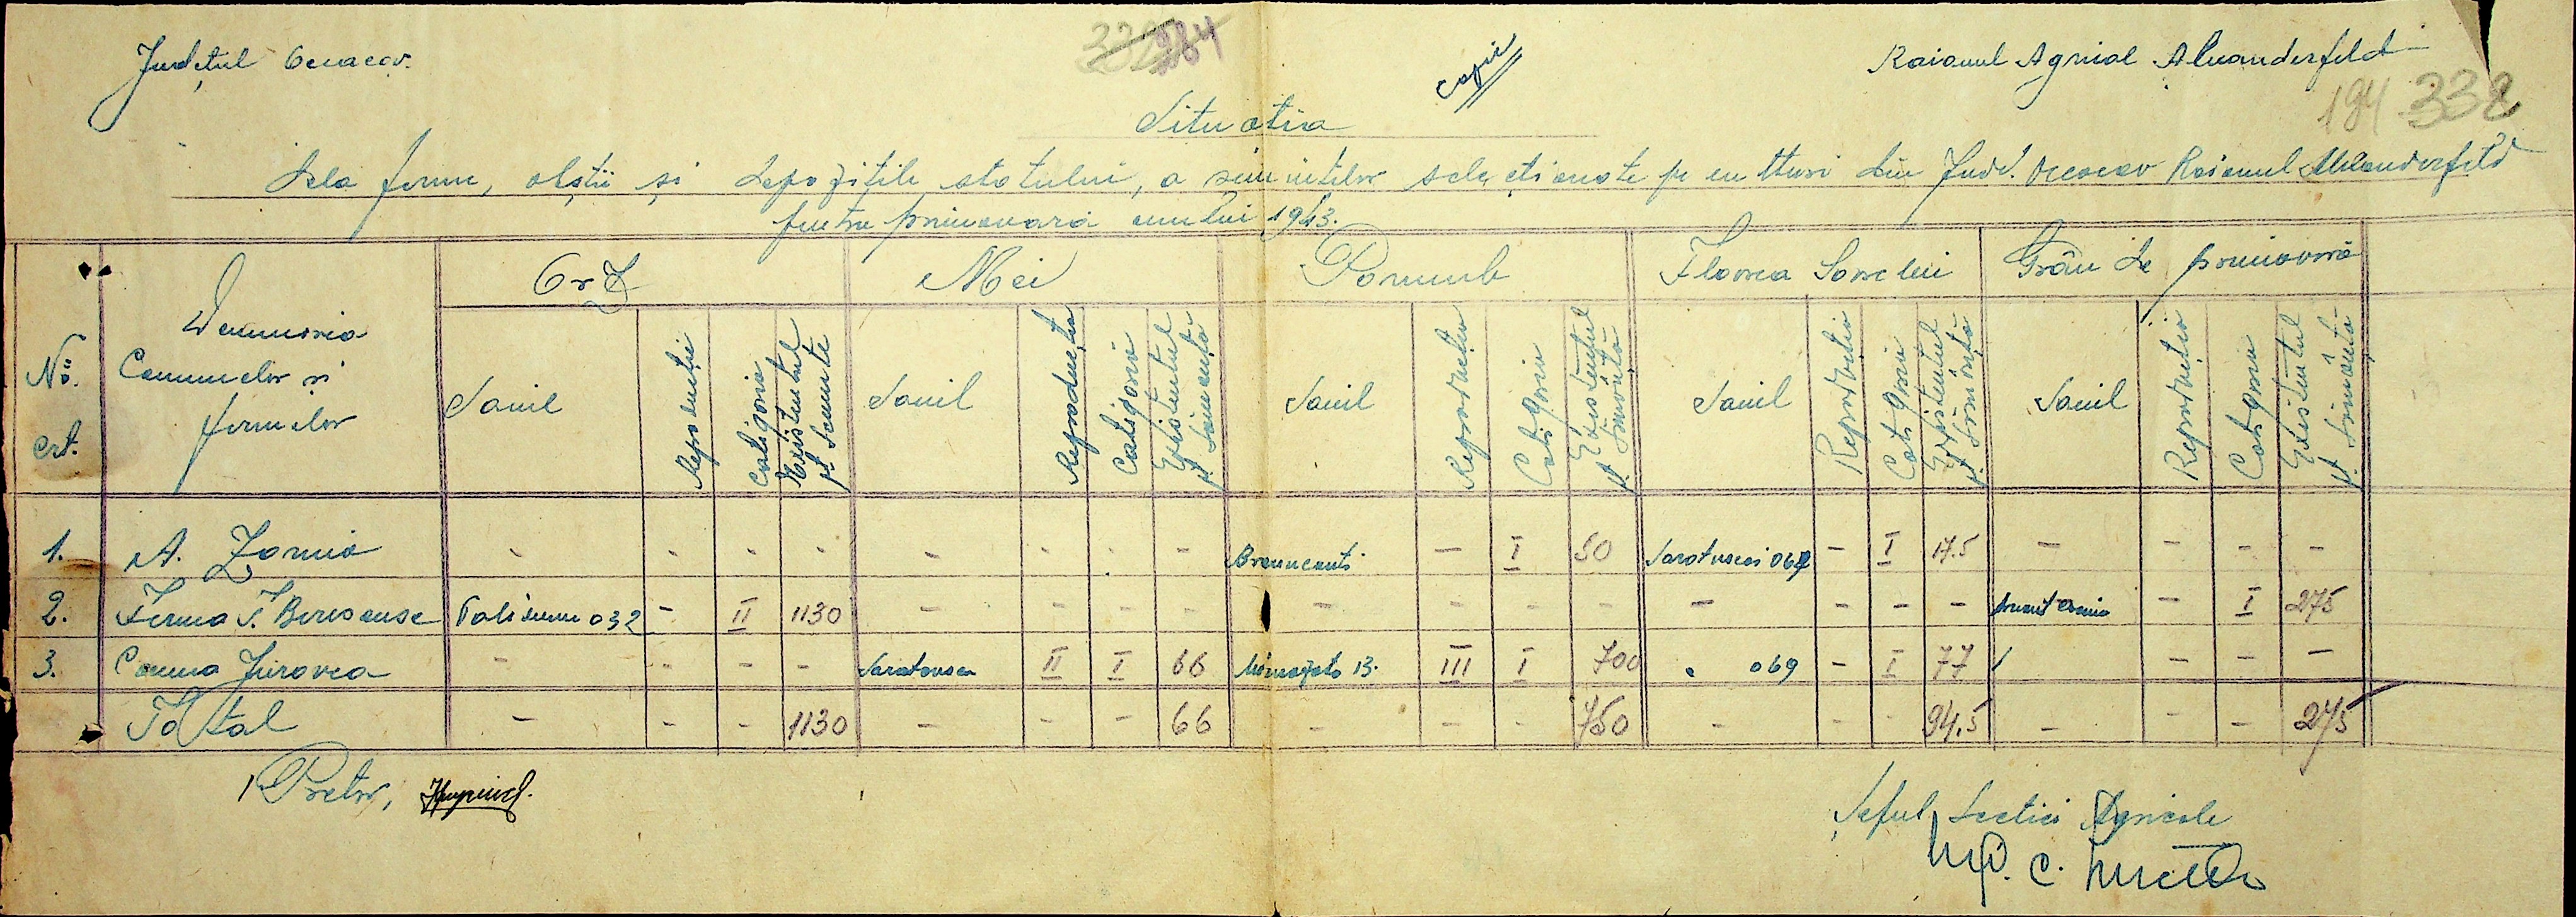 Județul Oceacov.
332 284
Copie
Raionul Agricol Alexanderfeld
194 332
Situatia
Dela ferme, obștii și depozitele statului, a semintelor selectionate pe culturi din Jud. Oceacov Raionul Alexanderfeld
pentru primavara anului 1943.
No. crt. | Denumirea Comunelor și fermelor | Orz | Mei | Porumb | Floarea Soarelui | Grâu de primăvară
Soiul | Reproducție | Categoria | Existentul pt Semințe | Soiul | Reproducția | Categoria | Existentul pt Sămanță | Soiul | Reproducția | Categoria | Existentul pt Sămânță | Soiul | Reproducția | Categoria | Existentul pt Sămânță | Soiul | Reproducția | Categoria | Existentul pt. Sămânță
1. A. Zornia - - - - - - - - - I 50 Saratuscai 069 - I 17.5 - - - -
2. Ferma T. Beresanse 032 - II 1130 - - - - - - - - - - - - - I 275
3. Comuna Jurovca - - - - Saratousca II I 66 13. III I 700 " 069 - I 77 / - - -
Total - - - 1130 - - - 66 - - - 750 - - - 94.5 - - - 275
Pretor,
Șeful Sectiei Agricole
C.